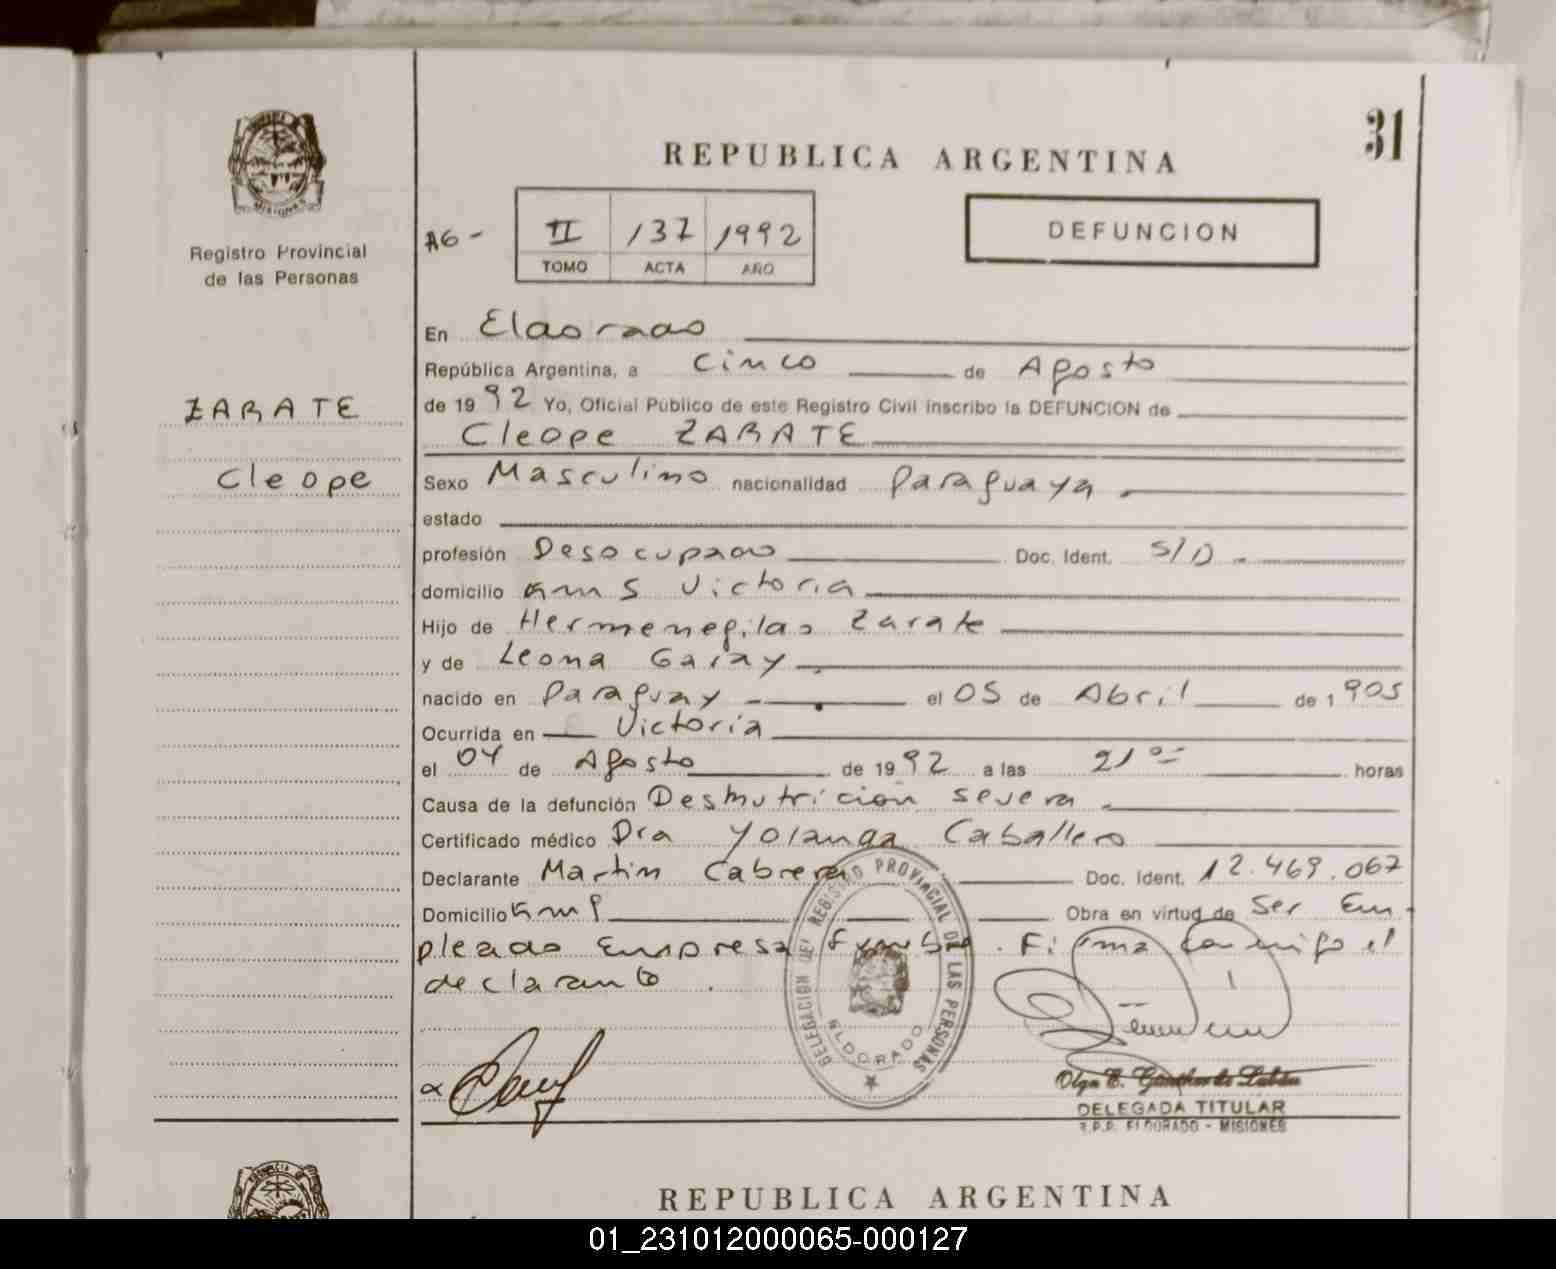 31
REPUBLICA ARGENTINA
MISIONES
Registro Provincial
de las Personas
A6 - II 137 1992
TOMO ACTA AÑO
DEFUNCION
En Eldorado
República Argentina, a Cinco de Agosto
ZARATE
de 1992 Yo, Oficial Público de este Registro Civil inscribo la DEFUNCION de
Cleope ZARATE
Cleope
Sexo Masculino nacionalidad Paraguaya
estado
profesión Desocupado Doc. Ident. S/D
domicilio Km 5 Victoria
Hijo de Hermenegildo Zarate
y de Leona Garay
nacido en Paraguay el 05 de Abril de 1905
Ocurrida en Victoria
el 04 de Agosto de 1992 a las 21 00 horas
Causa de la defunción Desnutrición severa
Certificado médico Dra Yolanda Caballero
Declarante Martin Cabrera Doc. Ident. 12.469.067
Domicilio Km 9 Obra en virtud de Ser Em-
pleado Empresa . Firma conmigo el
declarante .
DELEGACION DEL REGISTRO PROVINCIAL DE LAS PERSONAS
ELDORADO
Olga E.
DELEGADA TITULAR
R.P.P. ELDORADO - MISIONES
PROVINCIA DE
REPUBLICA ARGENTINA
01_231012000065-000127